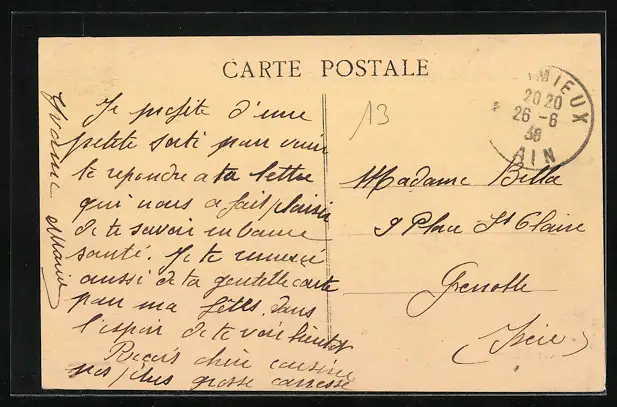 CARTE POSTALE
Je profite d'une
petite sorti pour venir
te repondre a ta lettre
qui nous a fait plaisir
de te savoir en bonne
santé. Je te remerci
aussi de ta gentille carte
pour ma fêtes. dans
l'espoir de te voir bientot
Reçois chère cousine
nos plus grosse caresse
Yvonne Marie
13
MIEUX
2020
26-6
38
AIN
Madame Bella
9 Place St Claire
Grenoble
(Isère)